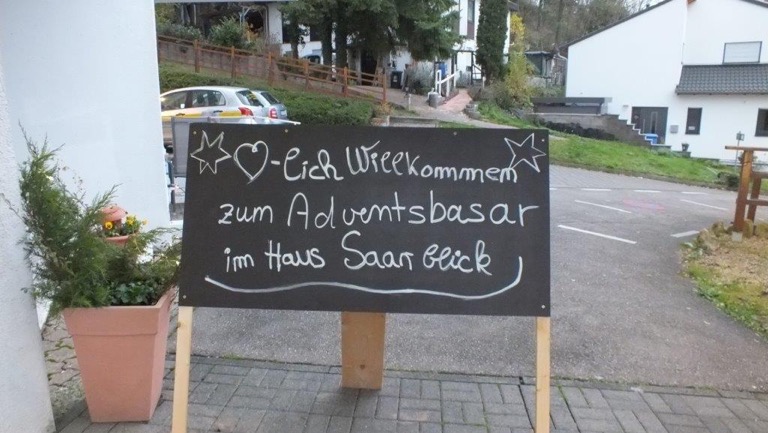 ♡-lich Willkommen
zum Adventsbasar
im Haus Saarblick